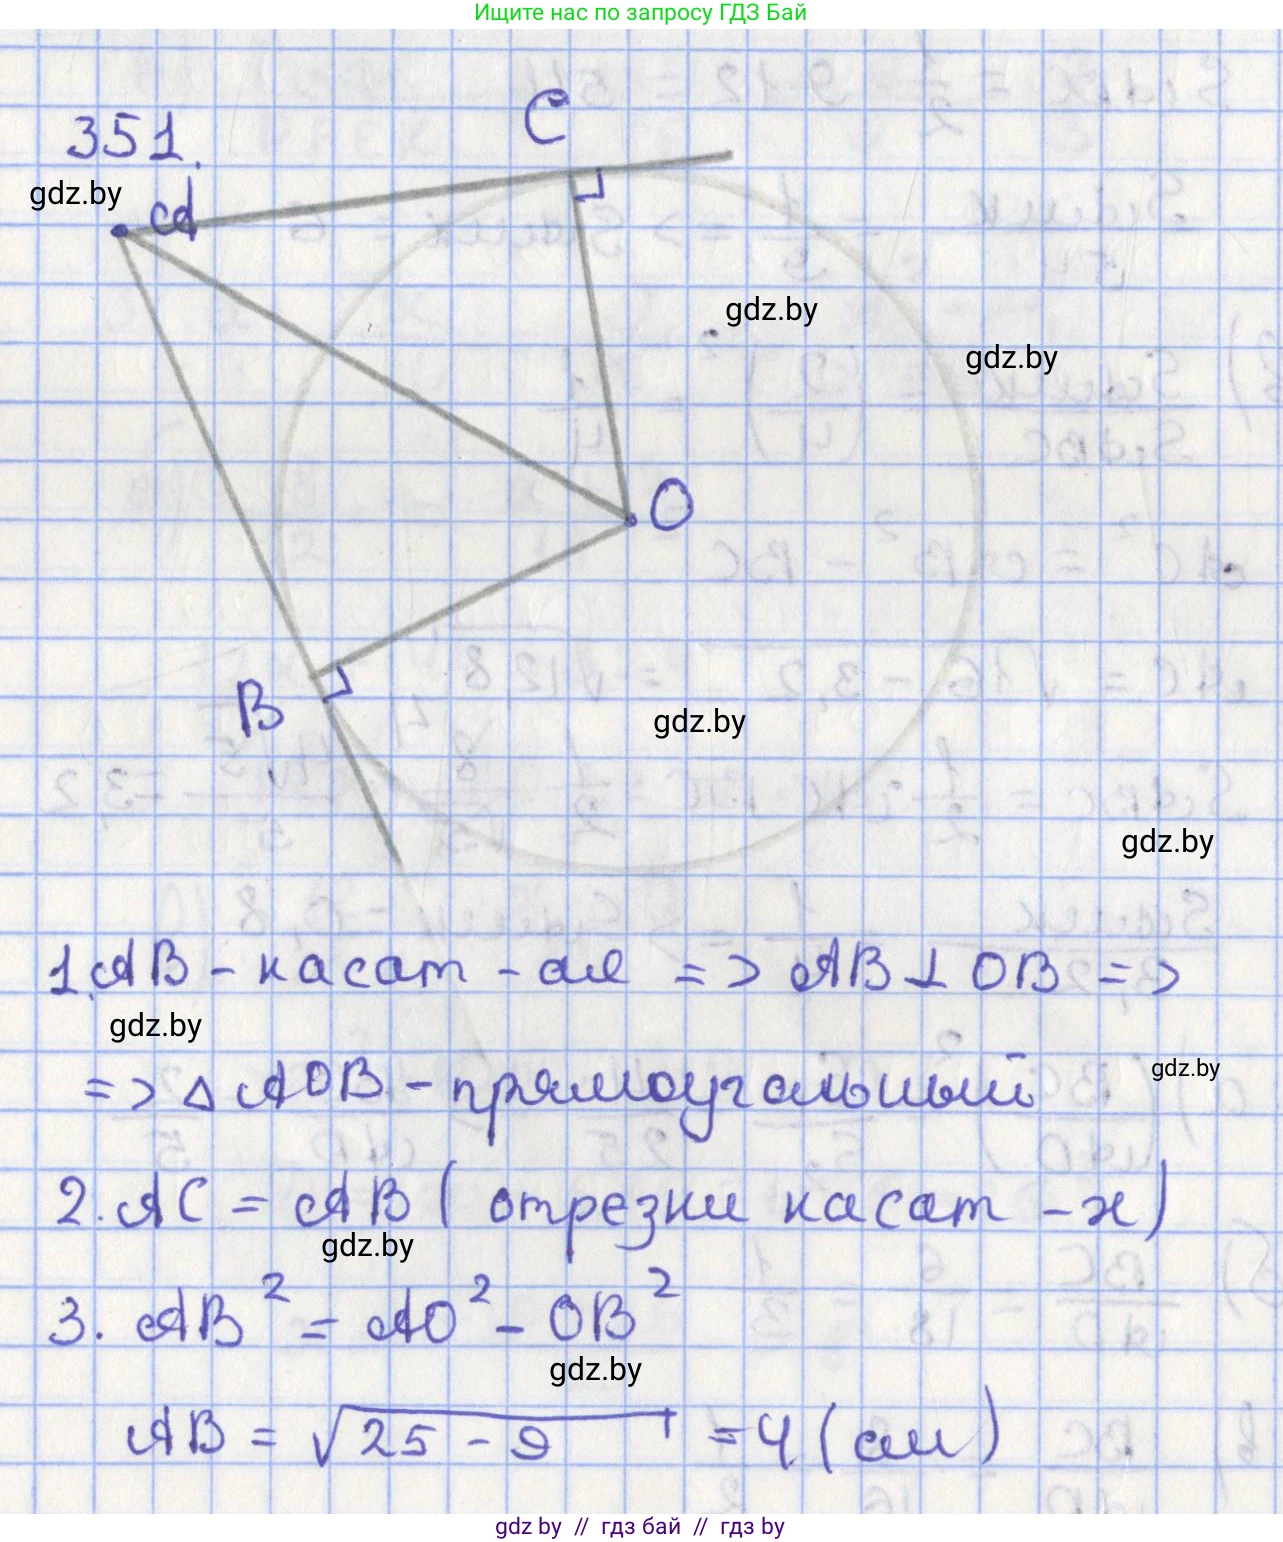 Ищите нас по запросу ГДЗ Бай
351.
gdz.by
C
A
gdz.by
gdz.by
O
B
gdz.by
gdz.by
1. AB - касат - ая => AB ⊥ OB =>
gdz.by
gdz.by
=> △ AOB - прямоугольный
2. AC = AB ( отрезки касат - х )
gdz.by
3. AB² = AO² - OB²
gdz.by
AB = √25 - 9 = 4 ( см )
gdz by // гдз бай // гдз by